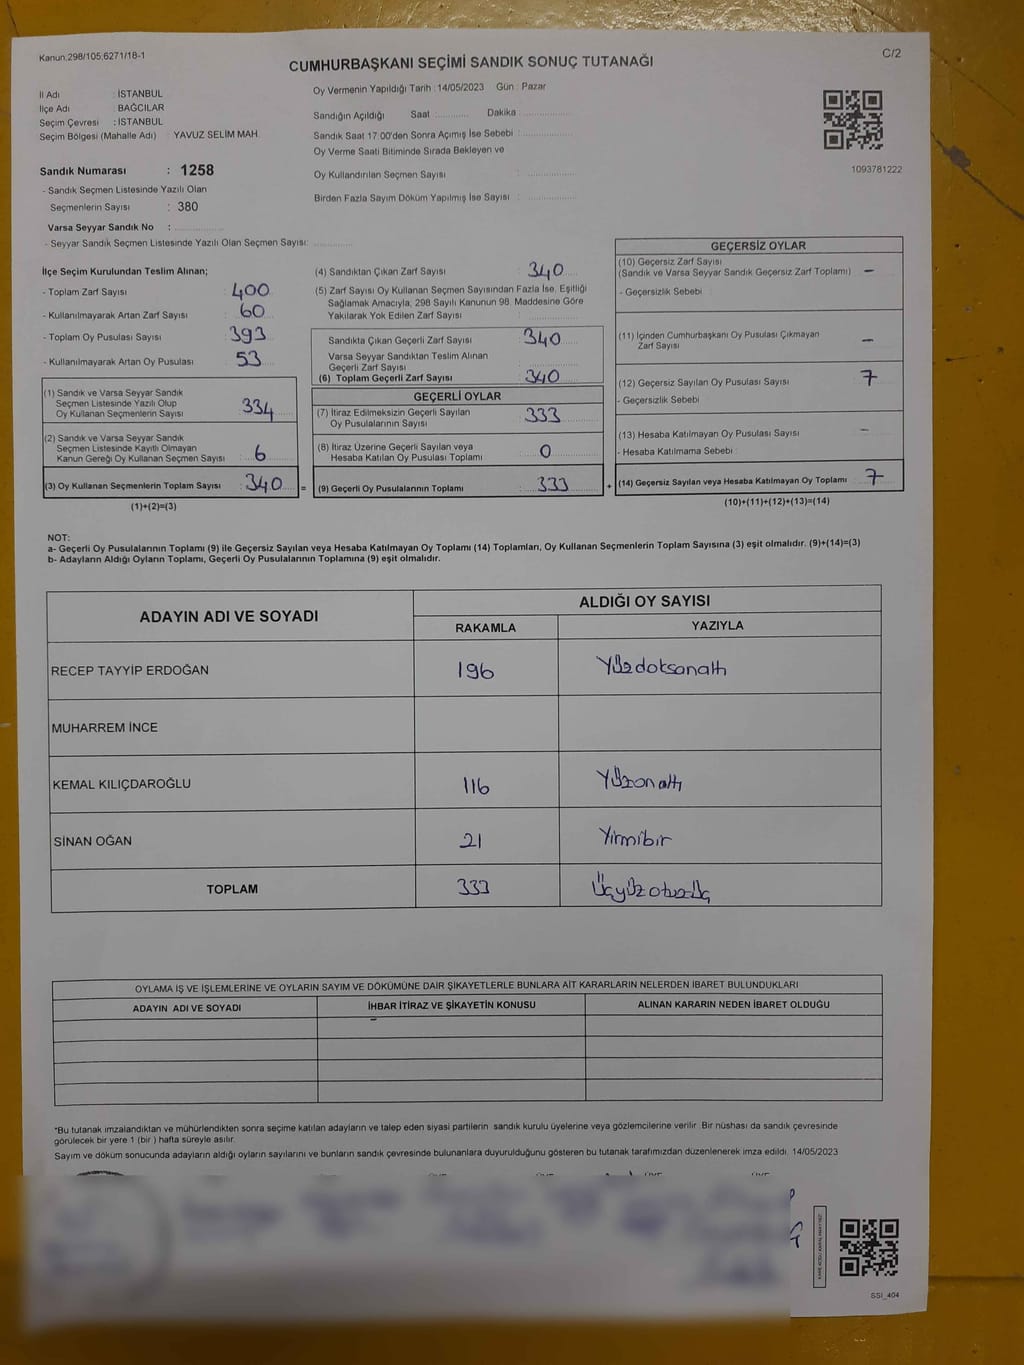 Kanun:298/105,6271/18-1
C/2
CUMHURBAŞKANI SEÇİMİ SANDIK SONUÇ TUTANAĞI
İl Adı : İSTANBUL
İlçe Adı : BAĞCILAR
Seçim Çevresi : İSTANBUL
Seçim Bölgesi (Mahalle Adı) : YAVUZ SELİM MAH.
Sandık Numarası : 1258
- Sandık Seçmen Listesinde Yazılı Olan
Seçmenlerin Sayısı : 380
Varsa Seyyar Sandık No :
- Seyyar Sandık Seçmen Listesinde Yazılı Olan Seçmen Sayısı:
Oy Vermenin Yapıldığı Tarih :14/05/2023 Gün : Pazar
Sandığın Açıldığı Saat Dakika
Sandık Saat 17.00'den Sonra Açımış İse Sebebi :
Oy Verme Saati Bitiminde Sırada Bekleyen ve
Oy Kullandırılan Seçmen Sayısı :
Birden Fazla Sayım Döküm Yapılmış İse Sayısı :
1093781222
İlçe Seçim Kurulundan Teslim Alınan;
- Toplam Zarf Sayısı : 400
- Kullanılmayarak Artan Zarf Sayısı : 60
- Toplam Oy Pusulası Sayısı : 393
- Kullanılmayarak Artan Oy Pusulası : 53
(1) Sandık ve Varsa Seyyar Sandık
Seçmen Listesinde Yazılı Olup
Oy Kullanan Seçmenlerin Sayısı : 334
(2) Sandık ve Varsa Seyyar Sandık
Seçmen Listesinde Kayıtlı Olmayan
Kanun Gereği Oy Kullanan Seçmen Sayısı : 6
(3) Oy Kullanan Seçmenlerin Toplam Sayısı : 340 =
(1)+(2)=(3)
(4) Sandıktan Çıkan Zarf Sayısı : 340
(5) Zarf Sayısı Oy Kullanan Seçmen Sayısından Fazla İse, Eşitliği
Sağlamak Amacıyla, 298 Sayılı Kanunun 98. Maddesine Göre
Yakılarak Yok Edilen Zarf Sayısı :
Sandıkta Çıkan Geçerli Zarf Sayısı : 340
Varsa Seyyar Sandıktan Teslim Alınan
Geçerli Zarf Sayısı :
(6) Toplam Geçerli Zarf Sayısı : 340
GEÇERLİ OYLAR
(7) İtiraz Edilmeksizin Geçerli Sayılan
Oy Pusulalarının Sayısı : 333
(8) İtiraz Üzerine Geçerli Sayılan veya
Hesaba Katılan Oy Pusulası Toplamı : 0
(9) Geçerli Oy Pusulalarının Toplamı : 333 +
GEÇERSİZ OYLAR
(10) Geçersiz Zarf Sayısı
(Sandık ve Varsa Seyyar Sandık Geçersiz Zarf Toplamı) : –
- Geçersizlik Sebebi :
(11) İçinden Cumhurbaşkanı Oy Pusulası Çıkmayan
Zarf Sayısı : –
(12) Geçersiz Sayılan Oy Pusulası Sayısı : 7
- Geçersizlik Sebebi :
(13) Hesaba Katılmayan Oy Pusulası Sayısı : –
- Hesaba Katılmama Sebebi :
(14) Geçersiz Sayılan veya Hesaba Katılmayan Oy Toplamı : 7
(10)+(11)+(12)+(13)=(14)
NOT:
a- Geçerli Oy Pusulalarının Toplamı (9) ile Geçersiz Sayılan veya Hesaba Katılmayan Oy Toplamı (14) Toplamları, Oy Kullanan Seçmenlerin Toplam Sayısına (3) eşit olmalıdır. (9)+(14)=(3)
b- Adayların Aldığı Oyların Toplamı, Geçerli Oy Pusulalarının Toplamına (9) eşit olmalıdır.
ADAYIN ADI VE SOYADI ALDIĞI OY SAYISI
RAKAMLA YAZIYLA
RECEP TAYYİP ERDOĞAN 196 Yüzdoksanaltı
MUHARREM İNCE
KEMAL KILIÇDAROĞLU 116 Yüzonaltı
SİNAN OĞAN 21 Yirmibir
TOPLAM 333 Üçyüzotuzüç
OYLAMA İŞ VE İŞLEMLERİNE VE OYLARIN SAYIM VE DÖKÜMÜNE DAİR ŞİKAYETLERLE BUNLARA AİT KARARLARIN NELERDEN İBARET BULUNDUKLARI
ADAYIN ADI VE SOYADI İHBAR İTİRAZ VE ŞİKAYETİN KONUSU ALINAN KARARIN NEDEN İBARET OLDUĞU
–
*Bu tutanak imzalandıktan ve mühürlendikten sonra seçime katılan adayların ve talep eden siyasi partilerin sandık kurulu üyelerine veya gözlemcilerine verilir. Bir nüshası da sandık çevresinde
görülecek bir yere 1 (bir ) hafta süreyle asılır.
Sayım ve döküm sonucunda adayların aldığı oyların sayılarını ve bunların sandık çevresinde bulunanlara duyurulduğunu gösteren bu tutanak tarafımızdan düzenlenerek imza edildi. 14/05/2023
SSI_404